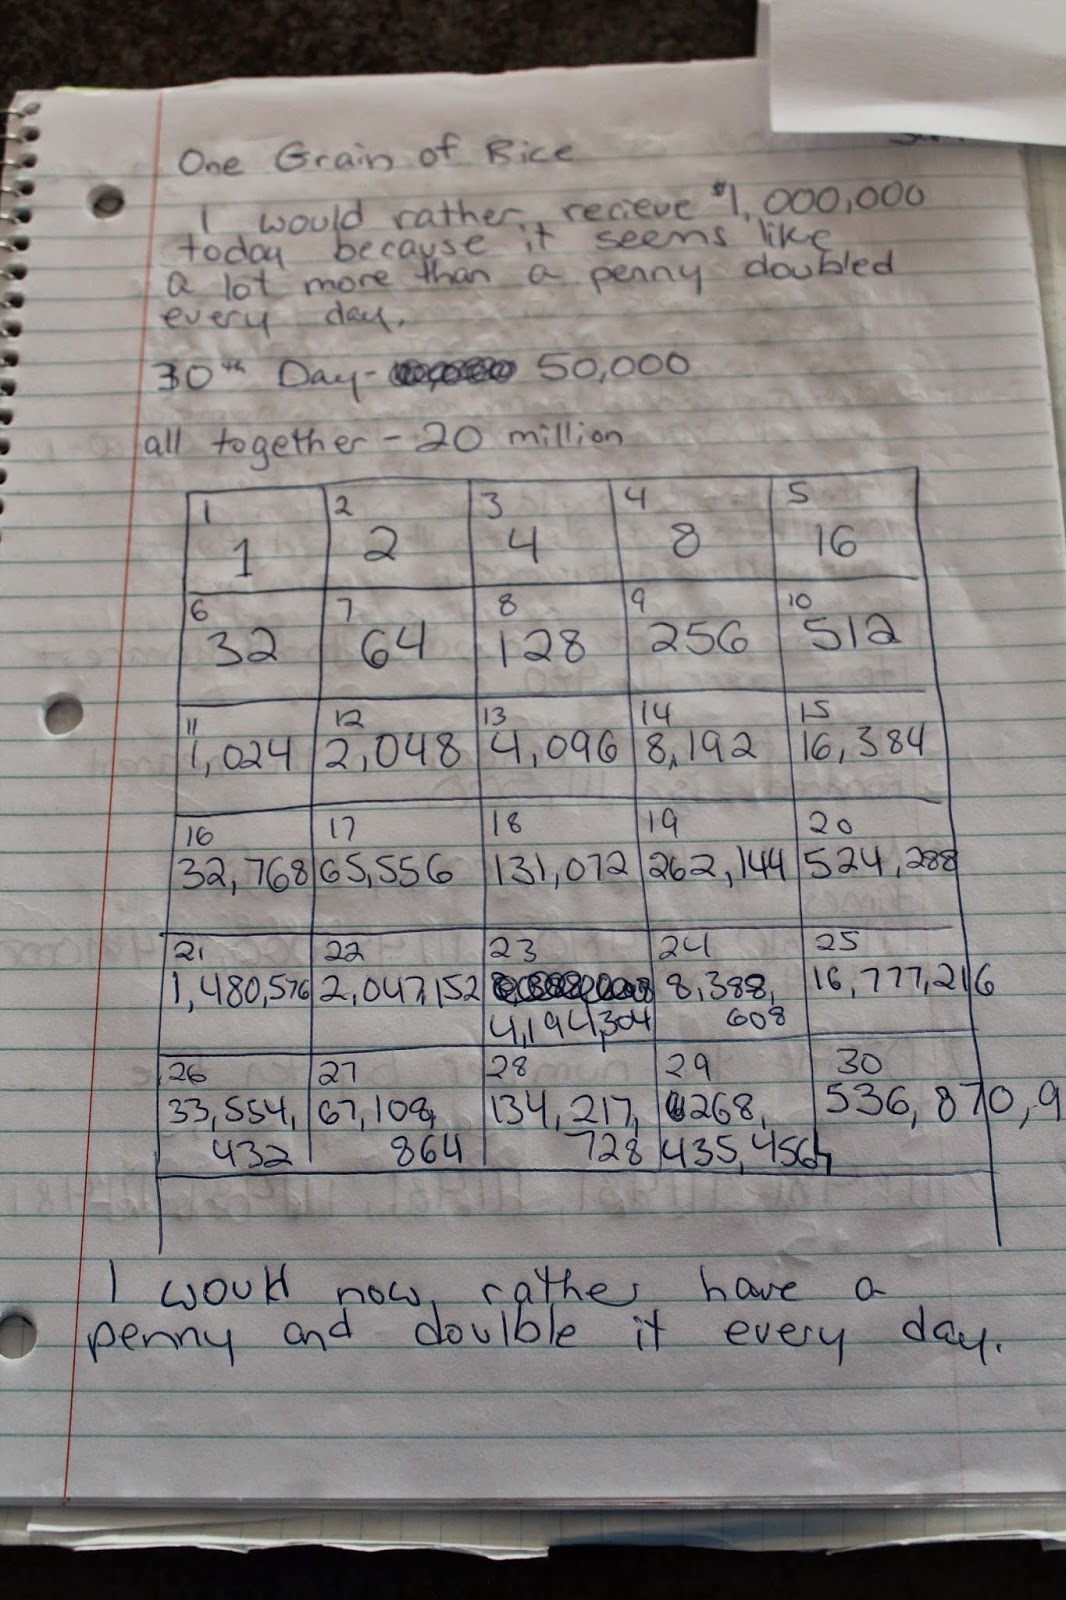 One Grain of Rice
I would rather, recieve $1,000,000
today because it seems like
a lot more than a penny doubled
every day.
30th Day - 50,000
all together - 20 million
1 2 3 4 5
1 2 4 8 16
6 7 8 9 10
32 64 128 256 512
11 12 13 14 15
1,024 2,048 4,096 8,192 16,384
16 17 18 19 20
32,768 65,556 131,072 262,144 524,288
21 22 23 24 25
1,480,576 2,047,152 8,388, 16,777,216
4,194,304 608
26 27 28 29 30
33,554, 67,108, 134,217, 268, 536,870,9
432 864 728 435,456
I would now, rather have a
penny and doulble it every day.